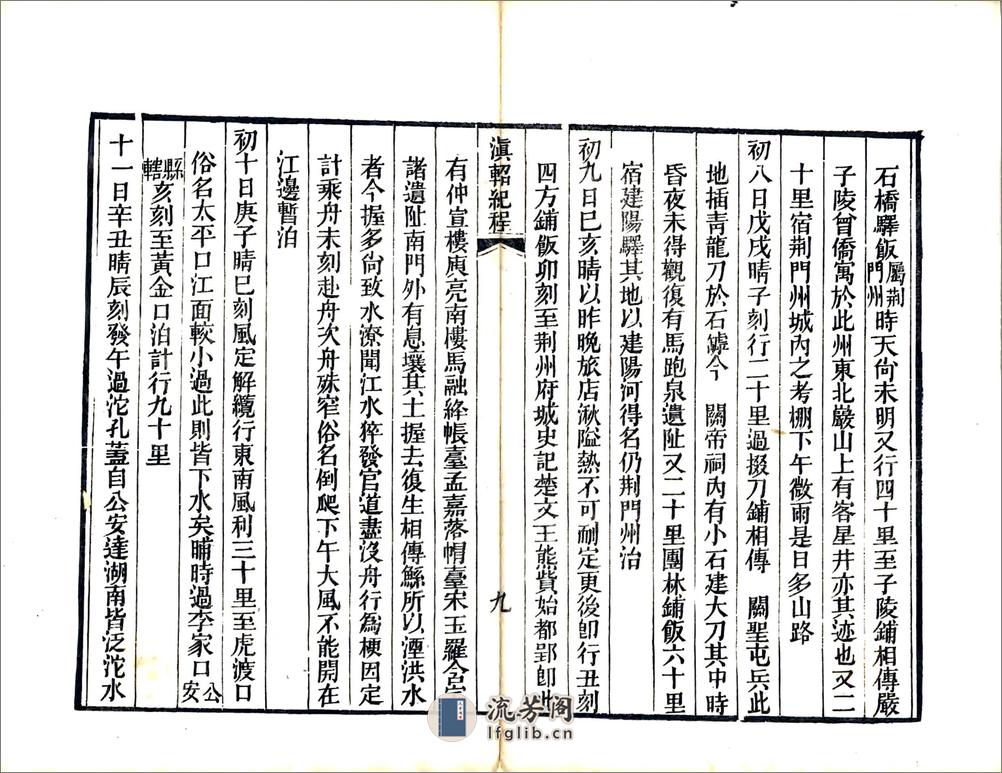 石橋驛飯屬荊門州時天尙未明又行四十里至子陵鋪相傳嚴
子陵曾僑寓於此州東北嚴山上有客星井亦其迹也又二
十里宿荊門州城內之考棚下午微雨是日多山路
初八日戊戌晴子刻行二十里過掇刀鋪相傳　關聖屯兵此
地插靑龍刀於石罅今　關帝祠內有小石建大刀其中時
昏夜未得觀復有馬跑泉遺阯又二十里團林鋪飯六十里
宿建陽驛其地以建陽河得名仍荊門州治
初九日己亥晴以昨晚旅店湫隘熱不可耐定更後卽行丑刻
四方鋪飯卯刻至荊州府城史記楚文王熊貲始都郢卽此
滇軺紀程
九
有仲宣樓庾亮南樓馬融絳帳臺孟嘉落帽臺宋玉羅含宅
諸遺阯南門外有息壤其土握去復生相傳鯀所以湮洪水
者今握多尙致水潦聞江水猝發官道盡沒舟行為梗因定
計乘舟未刻赴舟次舟殊窄俗名倒爬下午大風不能開在
江邊暫泊
初十日庚子晴巳刻風定解纜行東南風利三十里至虎渡口
俗名太平口江面較小過此則皆下水矣晡時過李家口公安
縣轄亥刻至黃金口泊計行九十里
十一日辛丑晴辰刻發午過沱孔蓋自公安達湖南皆泛沱水
流芳阁
lfglib.cn